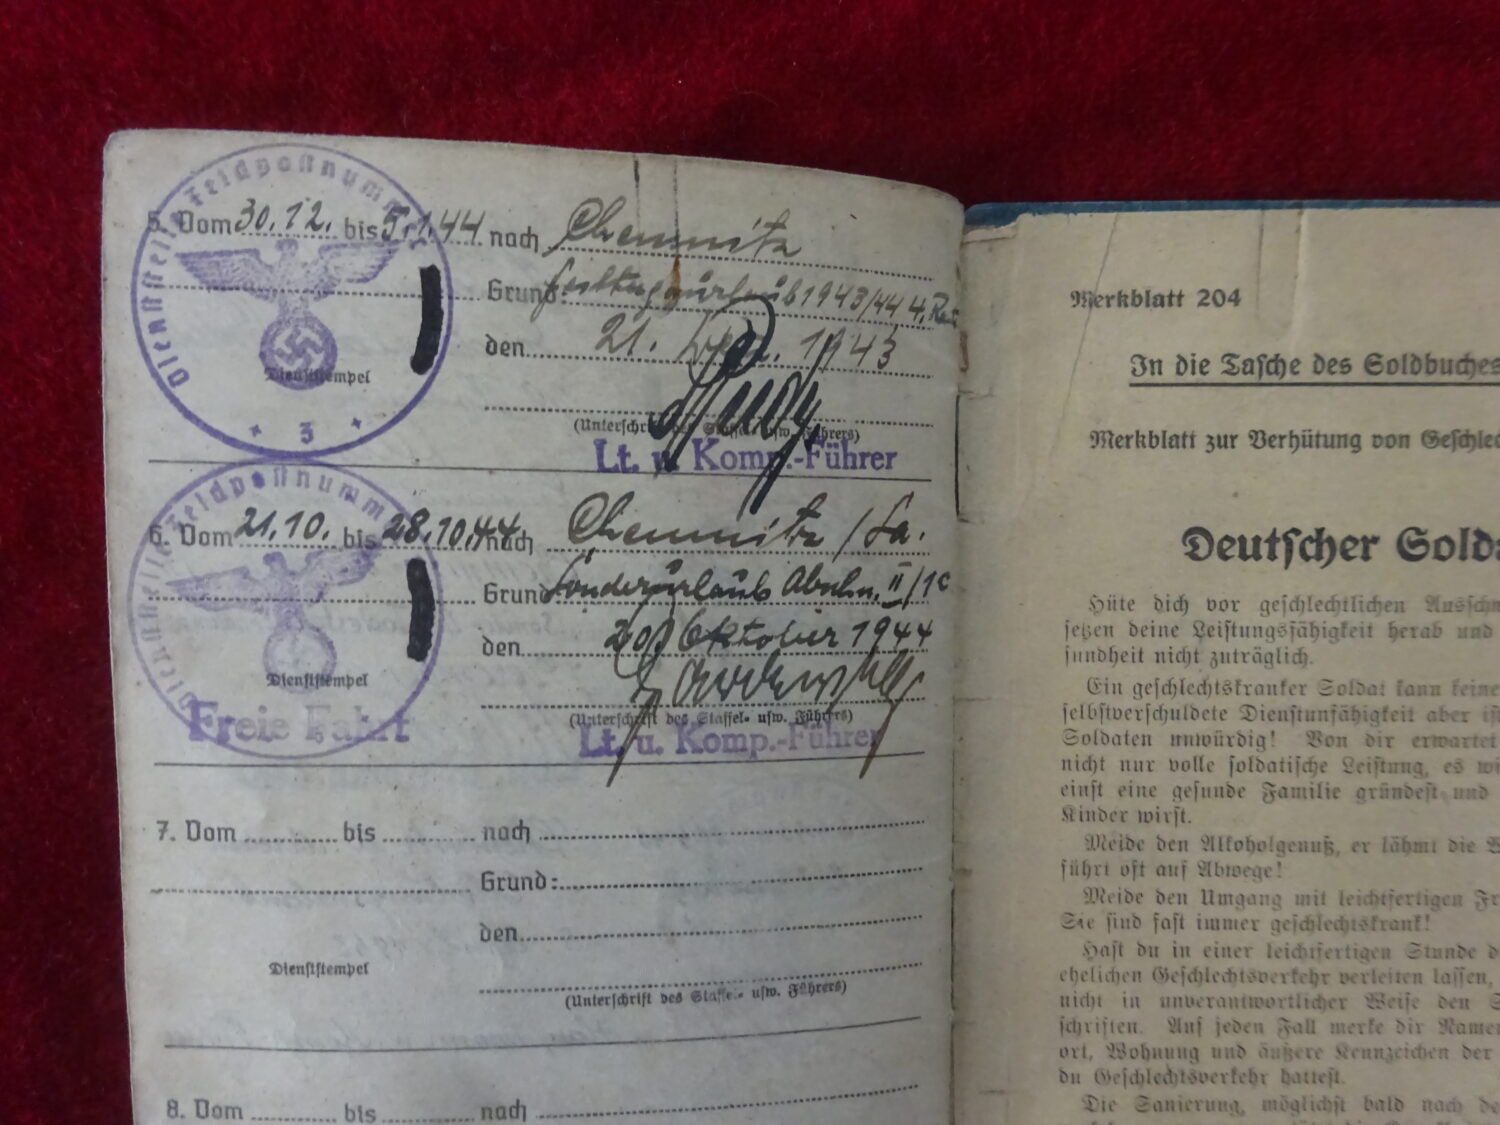 Dienststelle Feldpostnumm
5. Vom 30.12. bis 5.1.44 nach Chemnitz
Grund: Festtagsurlaub 1943/44 4.
den 21. Dez. 1943
Dienststempel
(Unterschrift des Staffel- usw. Führers)
Lt. u. Komp.-Führer
3
Dienststelle Feldpostnumm
6. Vom 21.10. bis 28.10.44 nach Chemnitz / Sa.
Grund Sonderurlaub Abschn. II/1c
den 20. Oktober 1944
Dienststempel
(Unterschrift des Staffel- usw. Führers)
Freie Fahrt
Lt. u. Komp.-Führer
7. Vom bis nach
Grund:
den
Dienststempel
(Unterschrift des Staffel- usw. Führers)
8. Vom bis nach
Merkblatt 204
In die Tasche des Soldbuches
Merkblatt zur Verhütung von Geschlec
Deutscher Solda
Hüte dich vor geschlechtlichen Ausschw
setzen deine Leistungsfähigkeit herab und
sundheit nicht zuträglich.
Ein geschlechtskranker Soldat kann keine
selbstverschuldete Dienstunfähigkeit aber is
Soldaten unwürdig! Von dir erwartet
nicht nur volle soldatische Leistung, es wi
einst eine gesunde Familie gründest und
Kinder wirst.
Meide den Alkoholgenuß, er lähmt die W
führt oft auf Abwege!
Meide den Umgang mit leichtfertigen Fr
Sie sind fast immer geschlechtskrank!
Hast du in einer leichtfertigen Stunde d
ehelichen Geschlechtsverkehr verleiten lassen,
nicht in unverantwortlicher Weise den S
schriften. Auf jeden Fall merke dir Namen
ort, Wohnung und äußere Kennzeichen der
du Geschlechtsverkehr hattest.
Die Sanierung, möglichst bald nach de